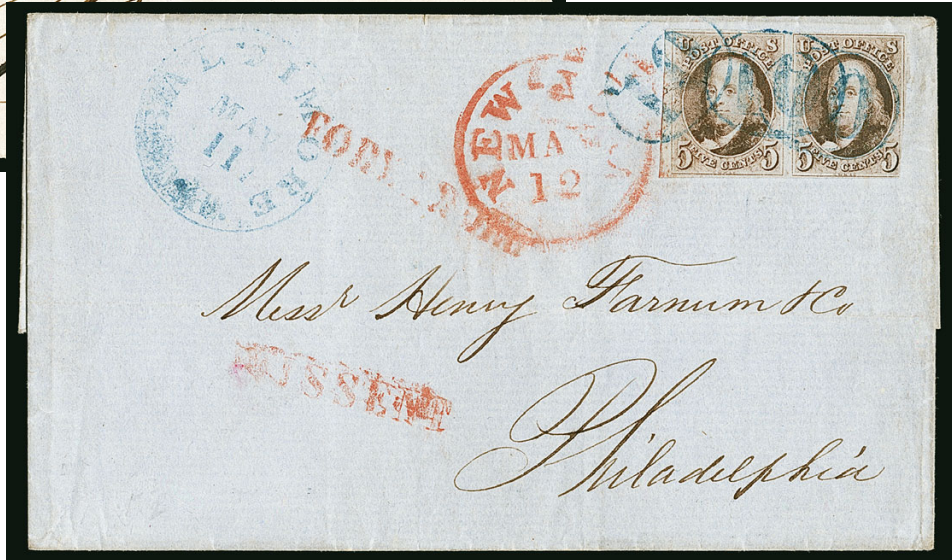 BALTIMORE Md.
MAY
11
FORWARDED
NEW
MAY
12
U S
POST OFFICE
5 FIVE CENTS 5
U S
POST OFFICE
5 FIVE CENTS 5
Messr Henry Farnum & Co
MISSENT
Philadelphia